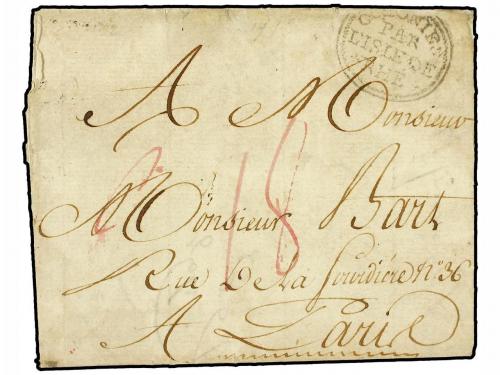 COLONIE
PAR
L'ISLE DE
A Monsieur
18
Monsieur Bart
Rue De La Sourdiére N.o 36
A Paris